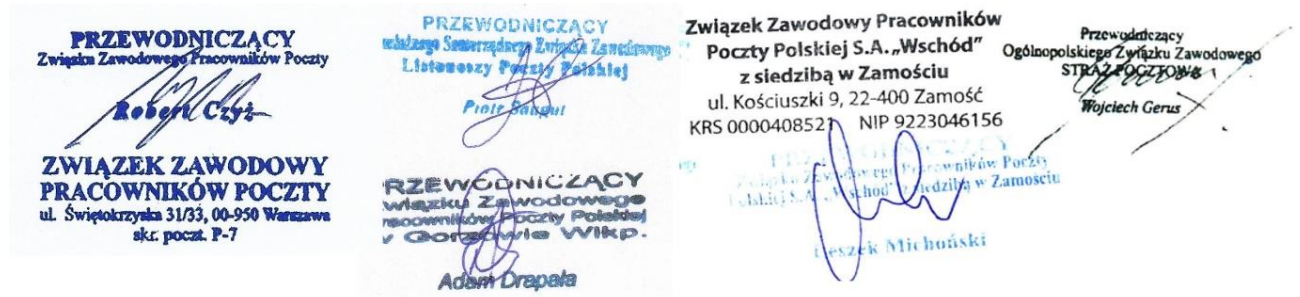 PRZEWODNICZĄCY
Związku Zawodowego Pracowników Poczty
Robert Czyż
ZWIĄZEK ZAWODOWY
PRACOWNIKÓW POCZTY
ul. Świętokrzyska 31/33, 00-950 Warszawa
skr. poczt. P-7
PRZEWODNICZĄCY
Związku Zawodowego
Listonoszy Poczty Polskiej
Piotr
RZEWODNICZĄCY
Związku Zawodowego
racowników Poczty Polskiej
Gorzowie Wlkp.
Adam Drapała
Związek Zawodowy Pracowników
Poczty Polskiej S.A. „Wschód”
z siedzibą w Zamościu
ul. Kościuszki 9, 22-400 Zamość
KRS 0000408521 NIP 9223046156
PRZEWODNICZĄCY
Związku Zawodowego Pracowników Poczty
Polskiej S.A. „Wschód” z siedzibą w Zamościu
Leszek Michoński
Przewodniczący
Ogólnopolskiego Związku Zawodowego
STRAŻ POCZTOWA
Wojciech Gerus